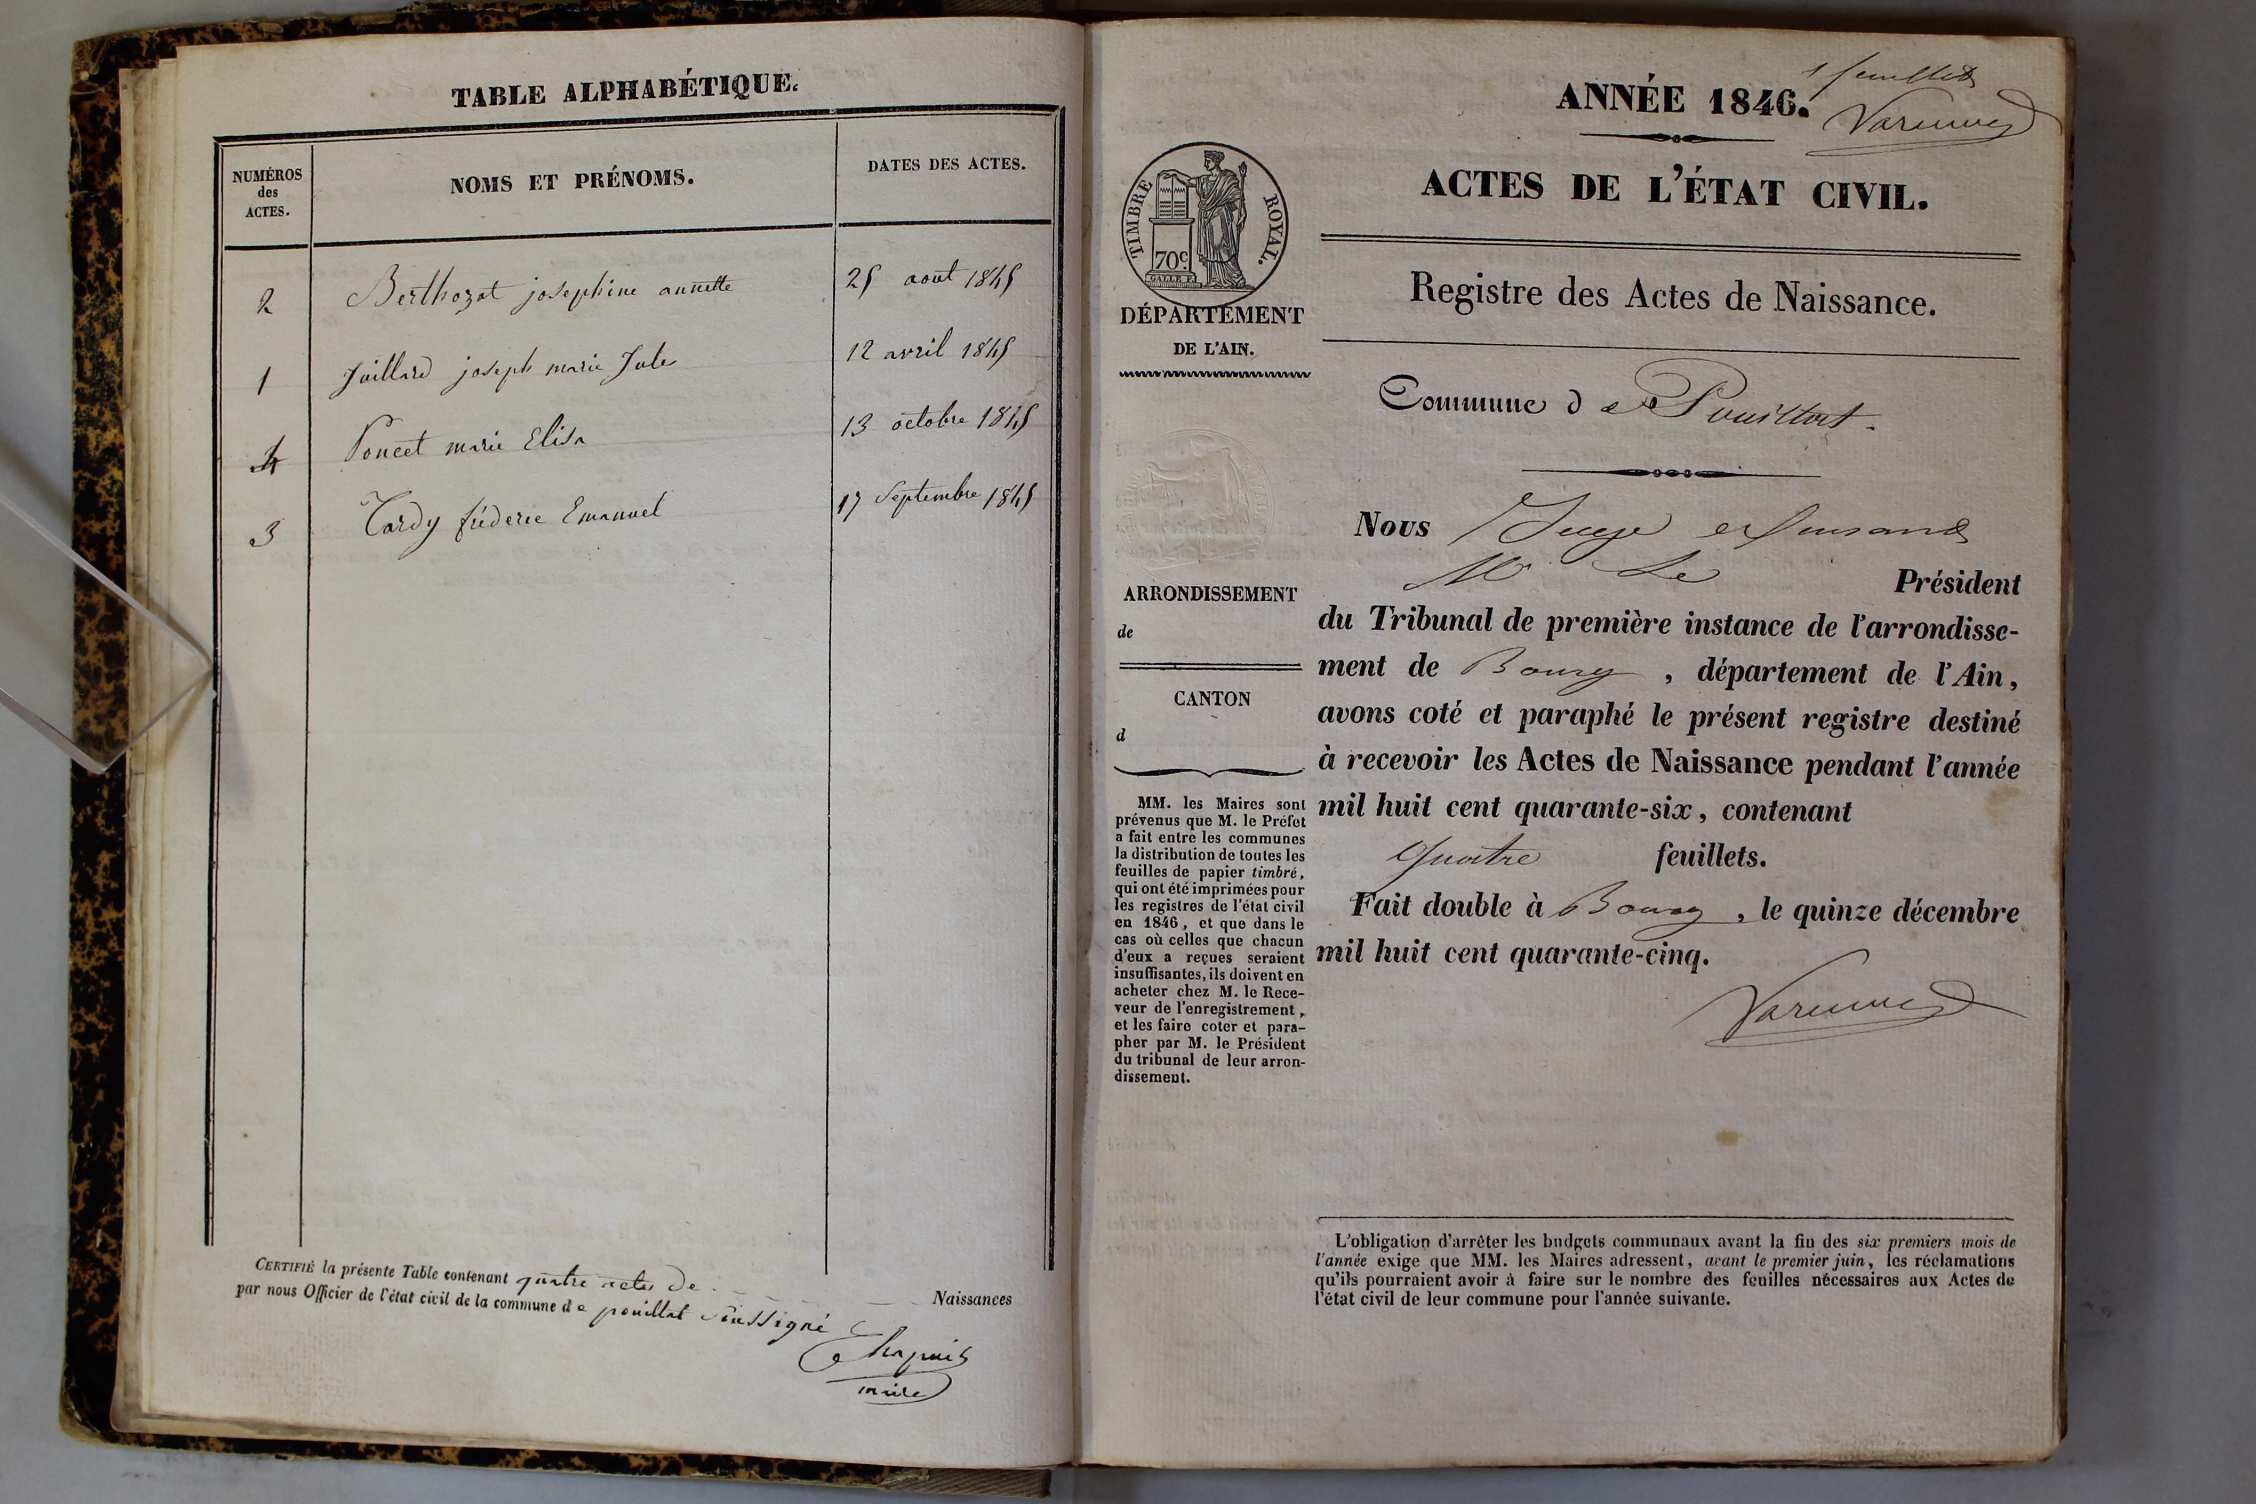 TABLE ALPHABÉTIQUE.
NUMÉROS
des
ACTES.
NOMS ET PRÉNOMS.
DATES DES ACTES.
2 Berthozat josephine annette 25 aout 1845
1 Juillard joseph marie Jule 12 avril 1845
4 Poncet marie Elisa 13 octobre 1845
3 Tardy fréderic Emanuel 17 Septembre 1845
CERTIFIÉ la présente Table contenant quatre actes de
Naissances
par nous Officier de l'état civil de la commune de pouillat soussigné
Chapuis
maire
1 feuillet
ANNÉE 1846.
ACTES DE L'ÉTAT CIVIL.
TIMBRE ROYAL.
70c.
GALLE F.
DÉPARTEMENT
DE L'AIN.
Registre des Actes de Naissance.
Commune de Pouillat.
ARRONDISSEMENT
de
CANTON
d
MM. les Maires sont
prévenus que M. le Préfet
a fait entre les communes
la distribution de toutes les
feuilles de papier timbré,
qui ont été imprimées pour
les registres de l'état civil
en 1846, et que dans le
cas où celles que chacun
d'eux a reçues seraient
insuffisantes, ils doivent en
acheter chez M. le Rece-
veur de l'enregistrement,
et les faire coter et para-
pher par M. le Président
du tribunal de leur arron-
dissement.
Nous Juge
Mr Le Président
du Tribunal de première instance de l'arrondisse-
ment de Bourg, département de l'Ain,
avons coté et paraphé le présent registre destiné
à recevoir les Actes de Naissance pendant l'année
mil huit cent quarante-six, contenant
Quatre feuillets.
Fait double à Bourg, le quinze décembre
mil huit cent quarante-cinq.
L'obligation d'arrêter les budgets communaux avant la fin des six premiers mois de
l'année exige que MM. les Maires adressent, avant le premier juin, les réclamations
qu'ils pourraient avoir à faire sur le nombre des feuilles nécessaires aux Actes de
l'état civil de leur commune pour l'année suivante.